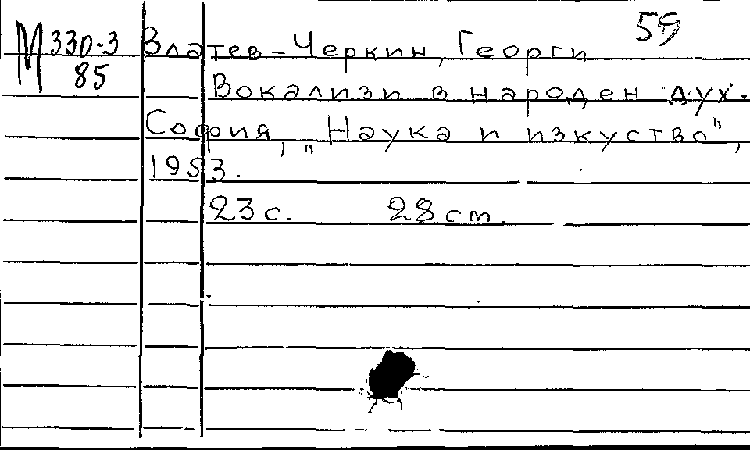 59
М 330-3 Златев-Черкин, Георги
85
Вокализи в народен дух.
София, „Наука и изкуство",
1953.
23 с. 28 cm.